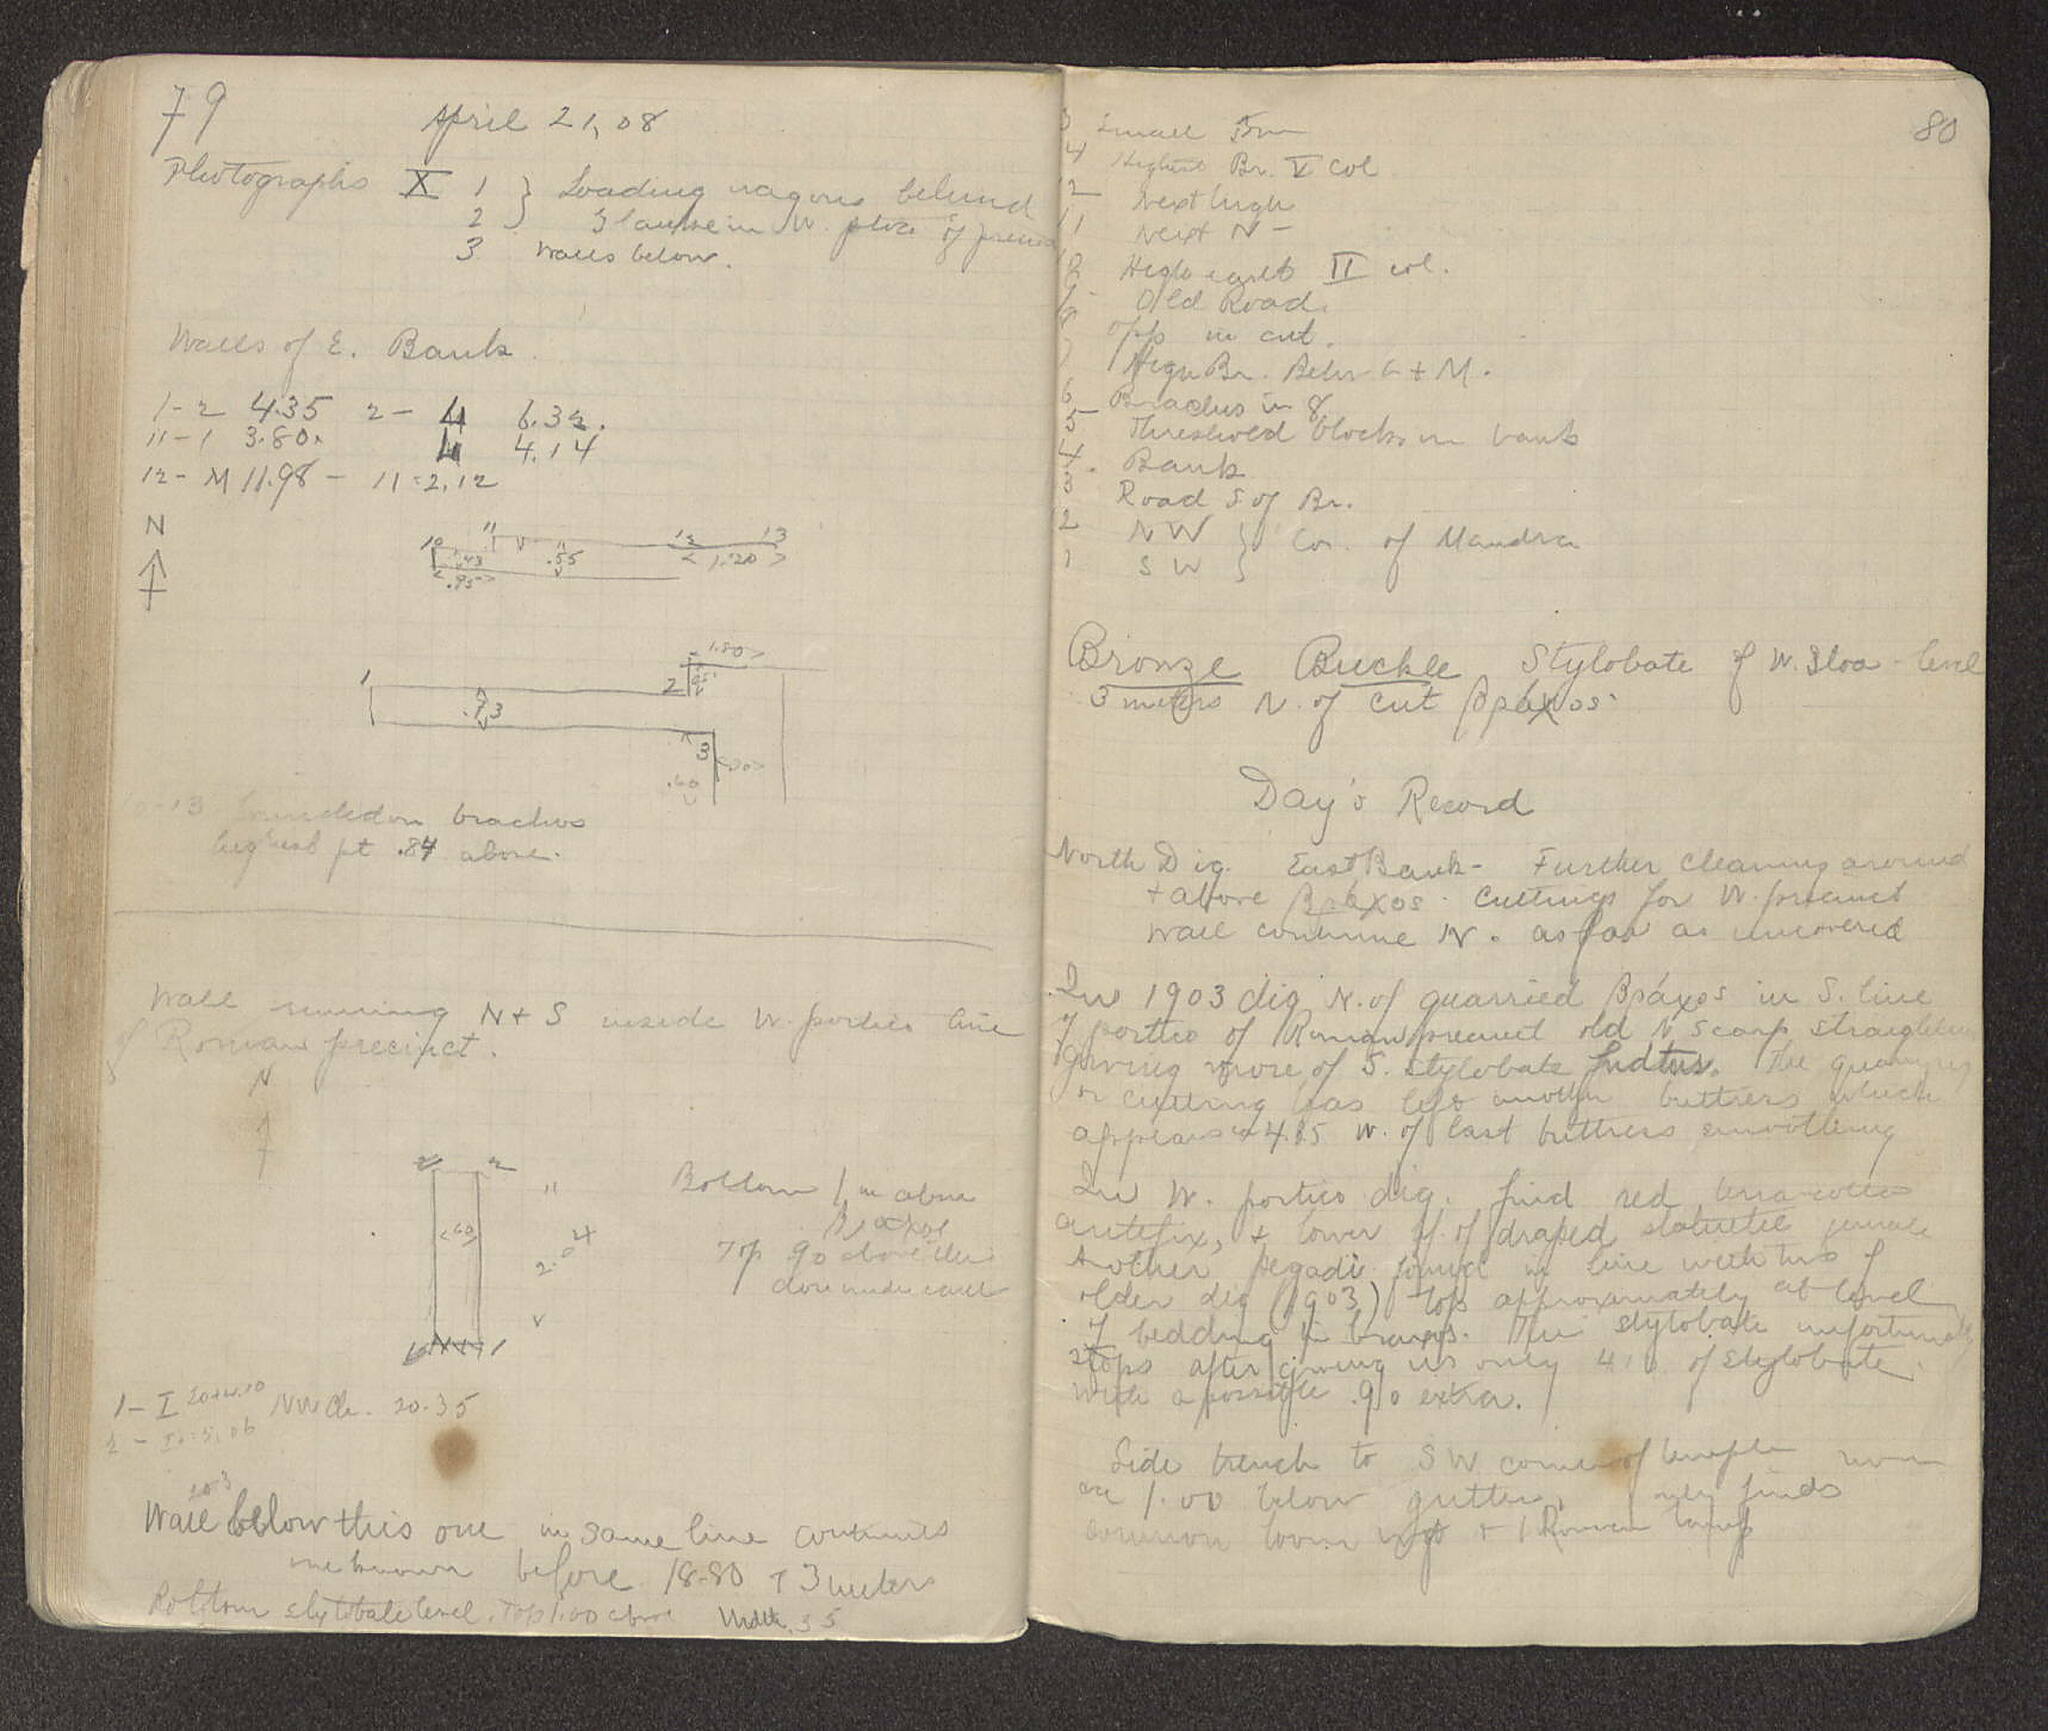 79
April 21, 08
Photographs X 1 } Loading wagons behind
2 } Glauke in W. of
3 Walls below.
Walls of E. Bank.
1-2 4.35 2- 4 6.32.
11-1 3.80. 4.14
12- M 11.98 - 11=2.12
N
10 11 12 13
.43 .55 1.20
.95
1.80
1 2
.73
3
.60
10-13 founded on brachos
highest pt .84 above.
Wall running N + S inside W. portico line
of Roman precinct.
N
2
.60
2.04
1
Bottom 1 m above
Top 90 above
under
1-I 20.35
2-
Wall below this one in same line continues
unknown before 18-80 + 3 meters
Bottom stylobate level. Top 1.00 above Width .35
80
3 Small
4 Highest Br. V col
12 Next high
11 Next N -
High earth II col.
Old Road.
8 opp in cut.
7 High Br. Below G + M.
6 Brachos in 8
5 Threshold blocks in bank
4. Bank
3 Road S of Br.
2 NW } Cor. of Mandra
1 SW }
Bronze Buckle Stylobate of W. Stoa - level
3 meters N. of cut βράχος
Day's Record
North Dig. East Bank - Further cleaning around
+ above βράχος. Cuttings for W. precinct
wall continue N. as far as uncovered
In 1903 dig N. of quarried βράχος in S. line
of portico of Roman precinct old N scarp
giving more of S. stylobate The
or cutting has left another buttress which
appears 4.85 W. of last buttress smoothing
In W. portico dig. find red terra-cotta
antefix, + lower pt. of draped statuette female
Another pegadi found in line with two of
older dig (1903) Tops approximately at level
of bedding in brachos. The stylobate unfortunately
stops after giving us only of stylobate
with a possible .90 extra.
Side trench to SW corner of temple
1.00 below gutter, only finds
common loom wgt + 1 Roman lamp